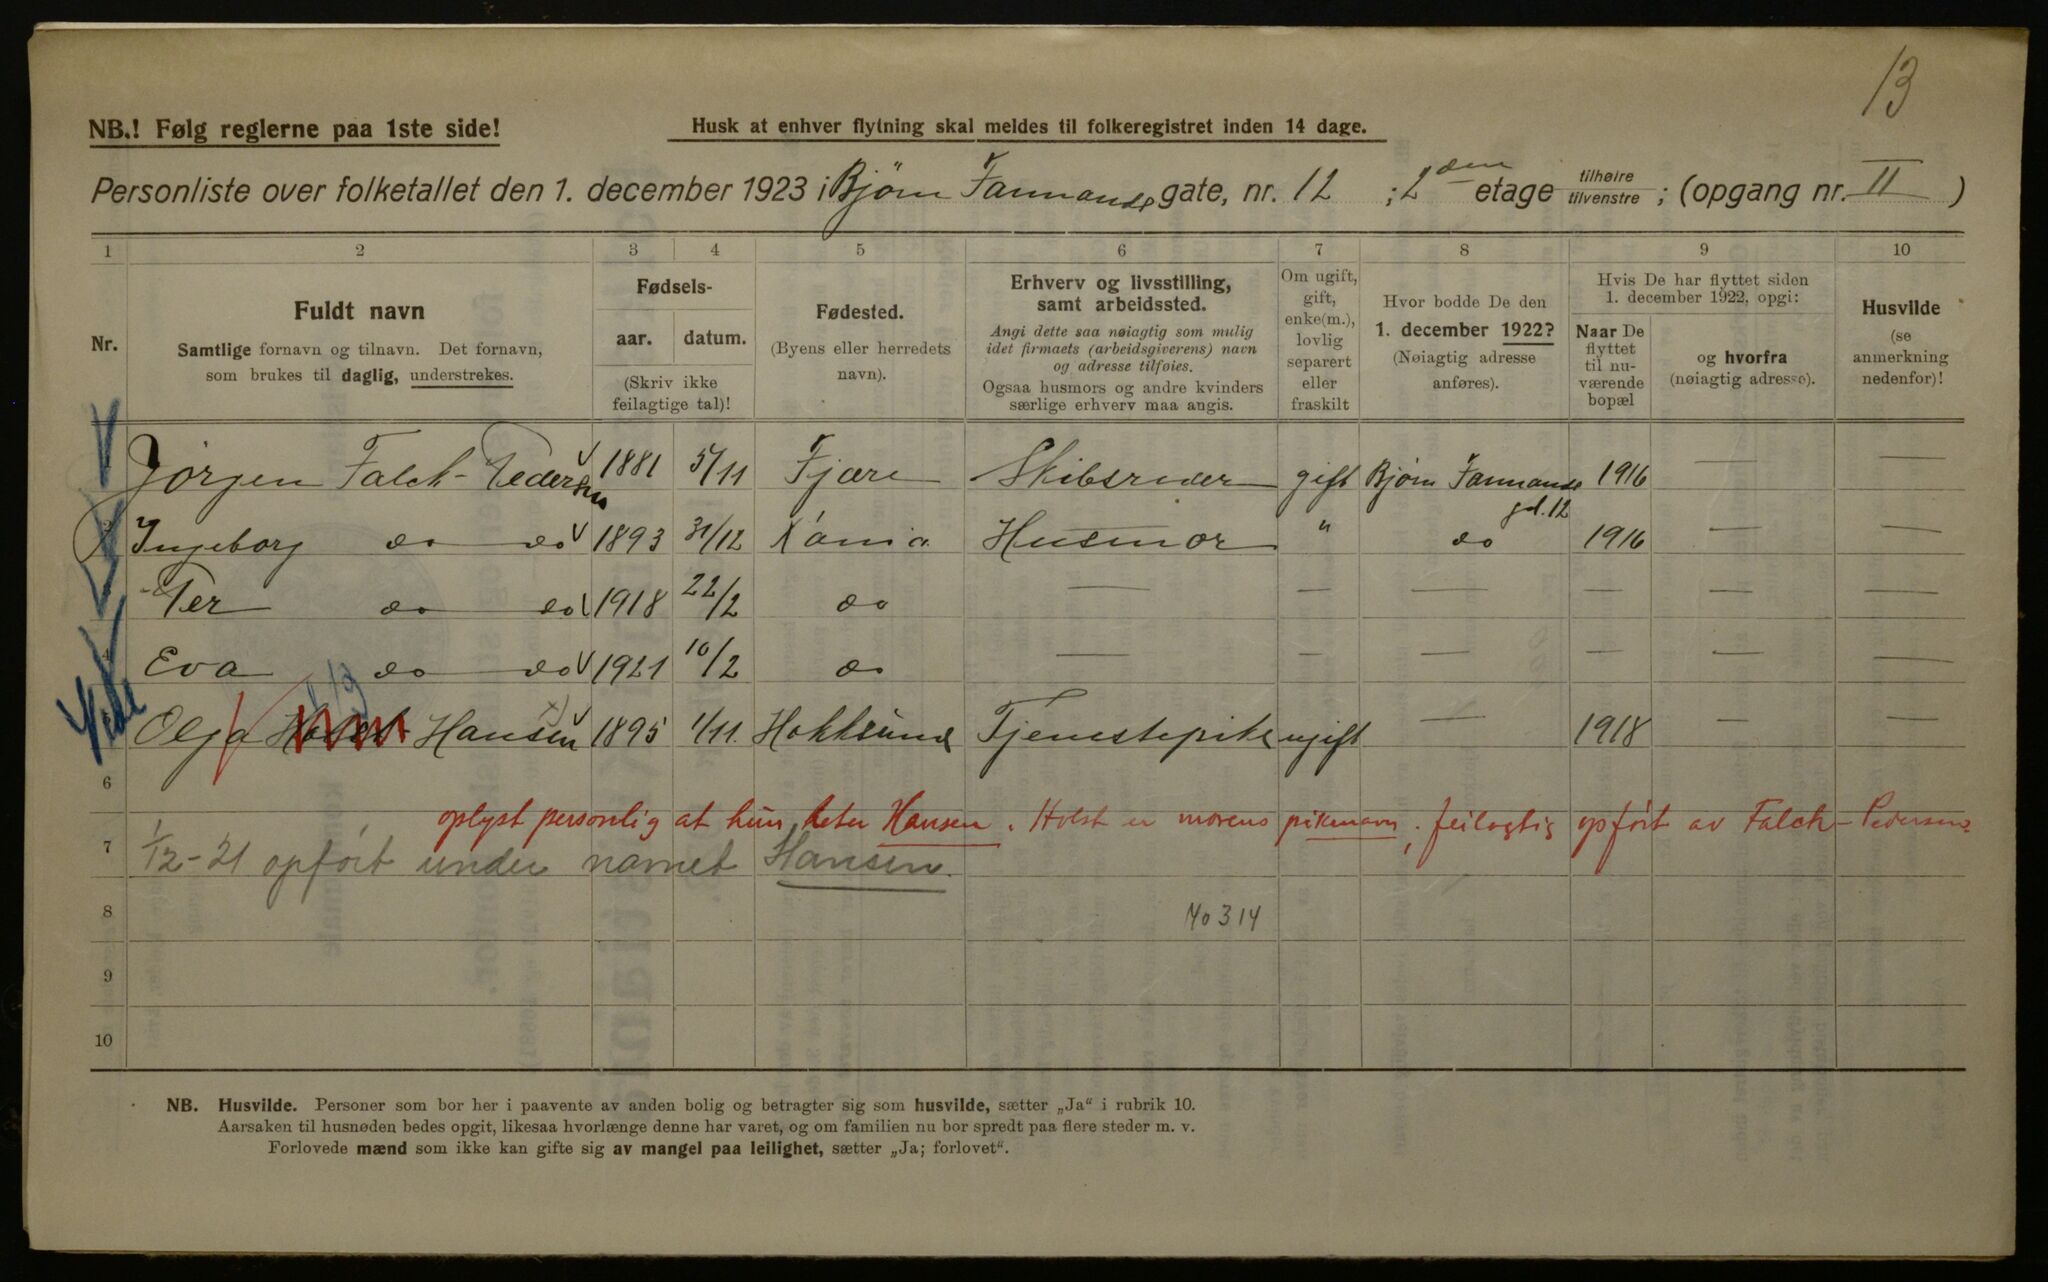 13
NB.! Følg reglerne paa 1ste side!
Husk at enhver flytning skal meldes til folkeregistret inden 14 dage.
Personliste over folketallet den 1. december 1923 i Bjørn Farmands gate, nr. 12 ; 2den etage tilhøire tilvenstre ; (opgang nr. II )
1 2 3 4 5 6 7 8 9 10
Nr.
Fuldt navn
Samtlige fornavn og tilnavn. Det fornavn,
som brukes til daglig, understrekes.
Fødsels-
aar. datum.
(Skriv ikke
feilagtige tal)!
Fødested.
(Byens eller herredets
navn).
Erhverv og livsstilling,
samt arbeidssted.
Angi dette saa nøiagtig som mulig
idet firmaets (arbeidsgiverens) navn
og adresse tilføies.
Ogsaa husmors og andre kvinders
særlige erhverv maa angis.
Om ugift,
gift,
enke(m.),
lovlig
separert
eller
fraskilt
Hvor bodde De den
1. december 1922?
(Nøiagtig adresse
anføres).
Hvis De har flyttet siden
1. december 1922, opgi:
Naar De
flyttet
til nu-
værende
bopæl
og hvorfra
(nøiagtig adresse).
Husvilde
(se
anmerkning
nedenfor)!
Jørgen Falck-Pedersen 1881 5/11 Fjære Skibsreder gift Bjørn Farmands gd. 12 1916 — —
Ingeborg do do 1893 31/12 Kania Husmor " do 1916 — —
Per do do 1918 22/2 do — — — — — —
4 Eva do do 1921 10/2 do — — — — — —
Olga Holst Hansen x) 1895 1/11 Hokksund Tjenestepike ugift — 1918 — —
6
oplyst personlig at hun heter Hansen. Holst er morens pikenavn, feilagtig opført av Falck-Pedersen
7 1/12-21 opført under navnet Hansen.
8
40314
9
10
NB. Husvilde. Personer som bor her i paavente av anden bolig og betragter sig som husvilde, sætter „Ja“ i rubrik 10.
Aarsaken til husnøden bedes opgit, likesaa hvorlænge denne har varet, og om familien nu bor spredt paa flere steder m. v.
Forlovede mænd som ikke kan gifte sig av mangel paa leilighet, sætter „Ja; forlovet“.